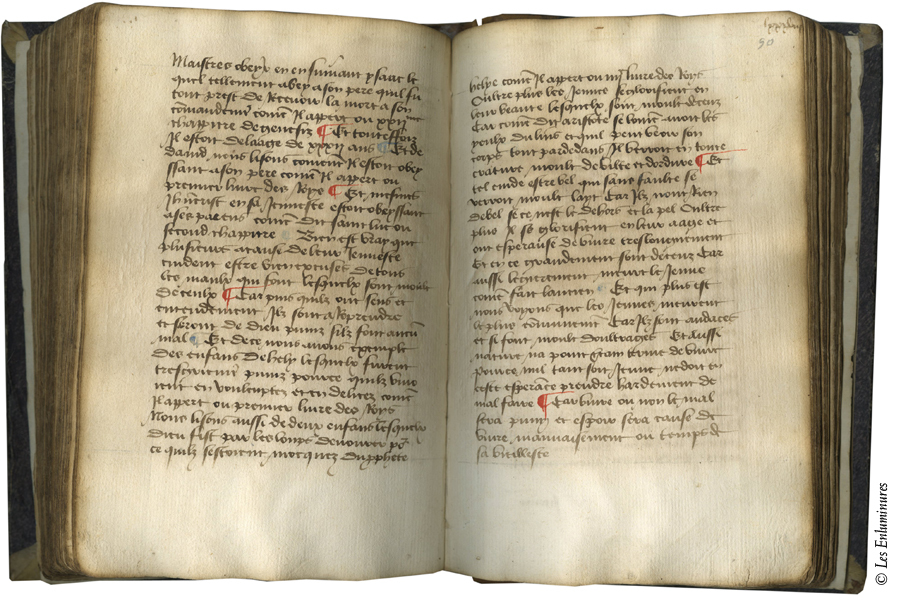 Maistres obeyr en ensuivant ysaac le
quel tellement obey a son pere quil fu
tout prest de recevoir la mort a son
comandemt come Il appert ou xxiime
chappitre de genesis ¶ Et toutesfoiz
Il estoit delaage de xxxii ans ¶ Et de
david nous lisons coment Il estoit obey
ssant a son pere come Il appert ou
premier livre des Roys ¶ Et mesmes
Ihucrist en sa Jeunesse estoit obeyssant
a ses parens come dit saint luc ou
second chappitre ¶ Bien est vray que
plusieurs a cause de leur Jeunesse
cuident estre bien excusez de tous
les maulx qui font lesquelx sont moult
deceulx ¶ Car puis quilz ont sens et
entendement Ilz sont a reprendre
et seront de dieu puniz silz font aucun
mal ¶ Et de ce nous avons exemple
des enfans de hely lesquelx furent
tresgriefment puniz pource quilz vive
rent en voluptez et en delices come
Il appert ou premier livre des Roys
Nous lisons aussi de deux enfans lesquelx
dieu fist par les loups devourer por
ce quilz sestoient mocquez du pphete
lxxxxviii
50
helye come Il appert ou iiii livre des Roys
Oultre plus les Jeunes se glorifient en
leur beaute lesquelx sont moult deceuz
Car come dit aristote se lomme avoit les
yeulx du lins et quil peut veoir son
corps tout par dedans Il verroit en toute
creature moult de vilte et dordure ¶ Et
tel cuide estre bel qui sans faulte se
verroit moult layt Car Ilz nont Rien
de bel se ce nest le dehors et la pel Oultre
plus Il se glorifient en leur aage et
ont esperance de vivre treslonguement
Et en ce grandement sont deceuz Car
aussi legierement meurt le Jeune
come fait lancien ¶ Et qui plus est
nous voyons que les Jeunes meurent
le plus comunement Car Ilz sont audaces
et si font moult doultrages Et aussi
nature na point certain terme de vivre
Pource nul tant soit Jeune ne doit en
ceste esperace prendre hardement de
mal faire ¶ Car vivre ou non le mal
sera puny et espoir sera cause de
vivre mauvaisement ou temps de
sa viellesse
© Les Enluminures